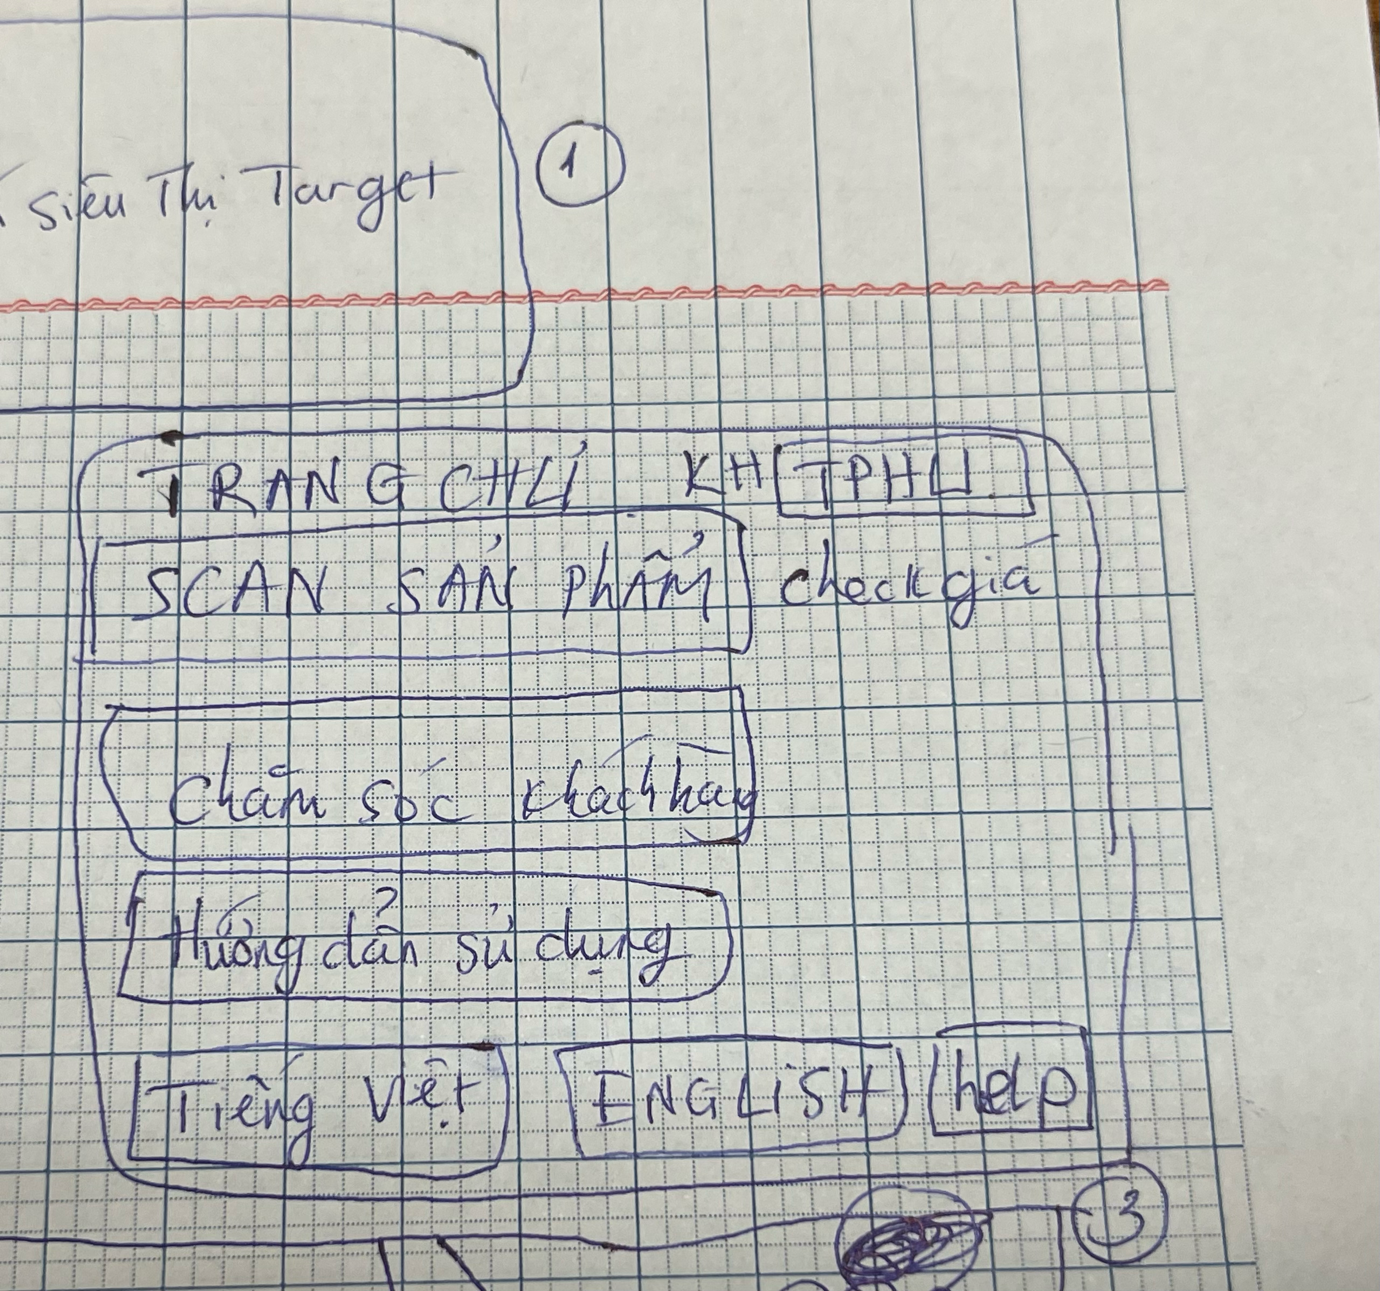 siêu Thị Target
1
TRANG CHỦ KH TPHU
SCAN SẢN PHẨM check giá
Chăm sóc khách hàng
Hướng dẩn sử dụng
Tiếng Việt ENGLiSH help
3